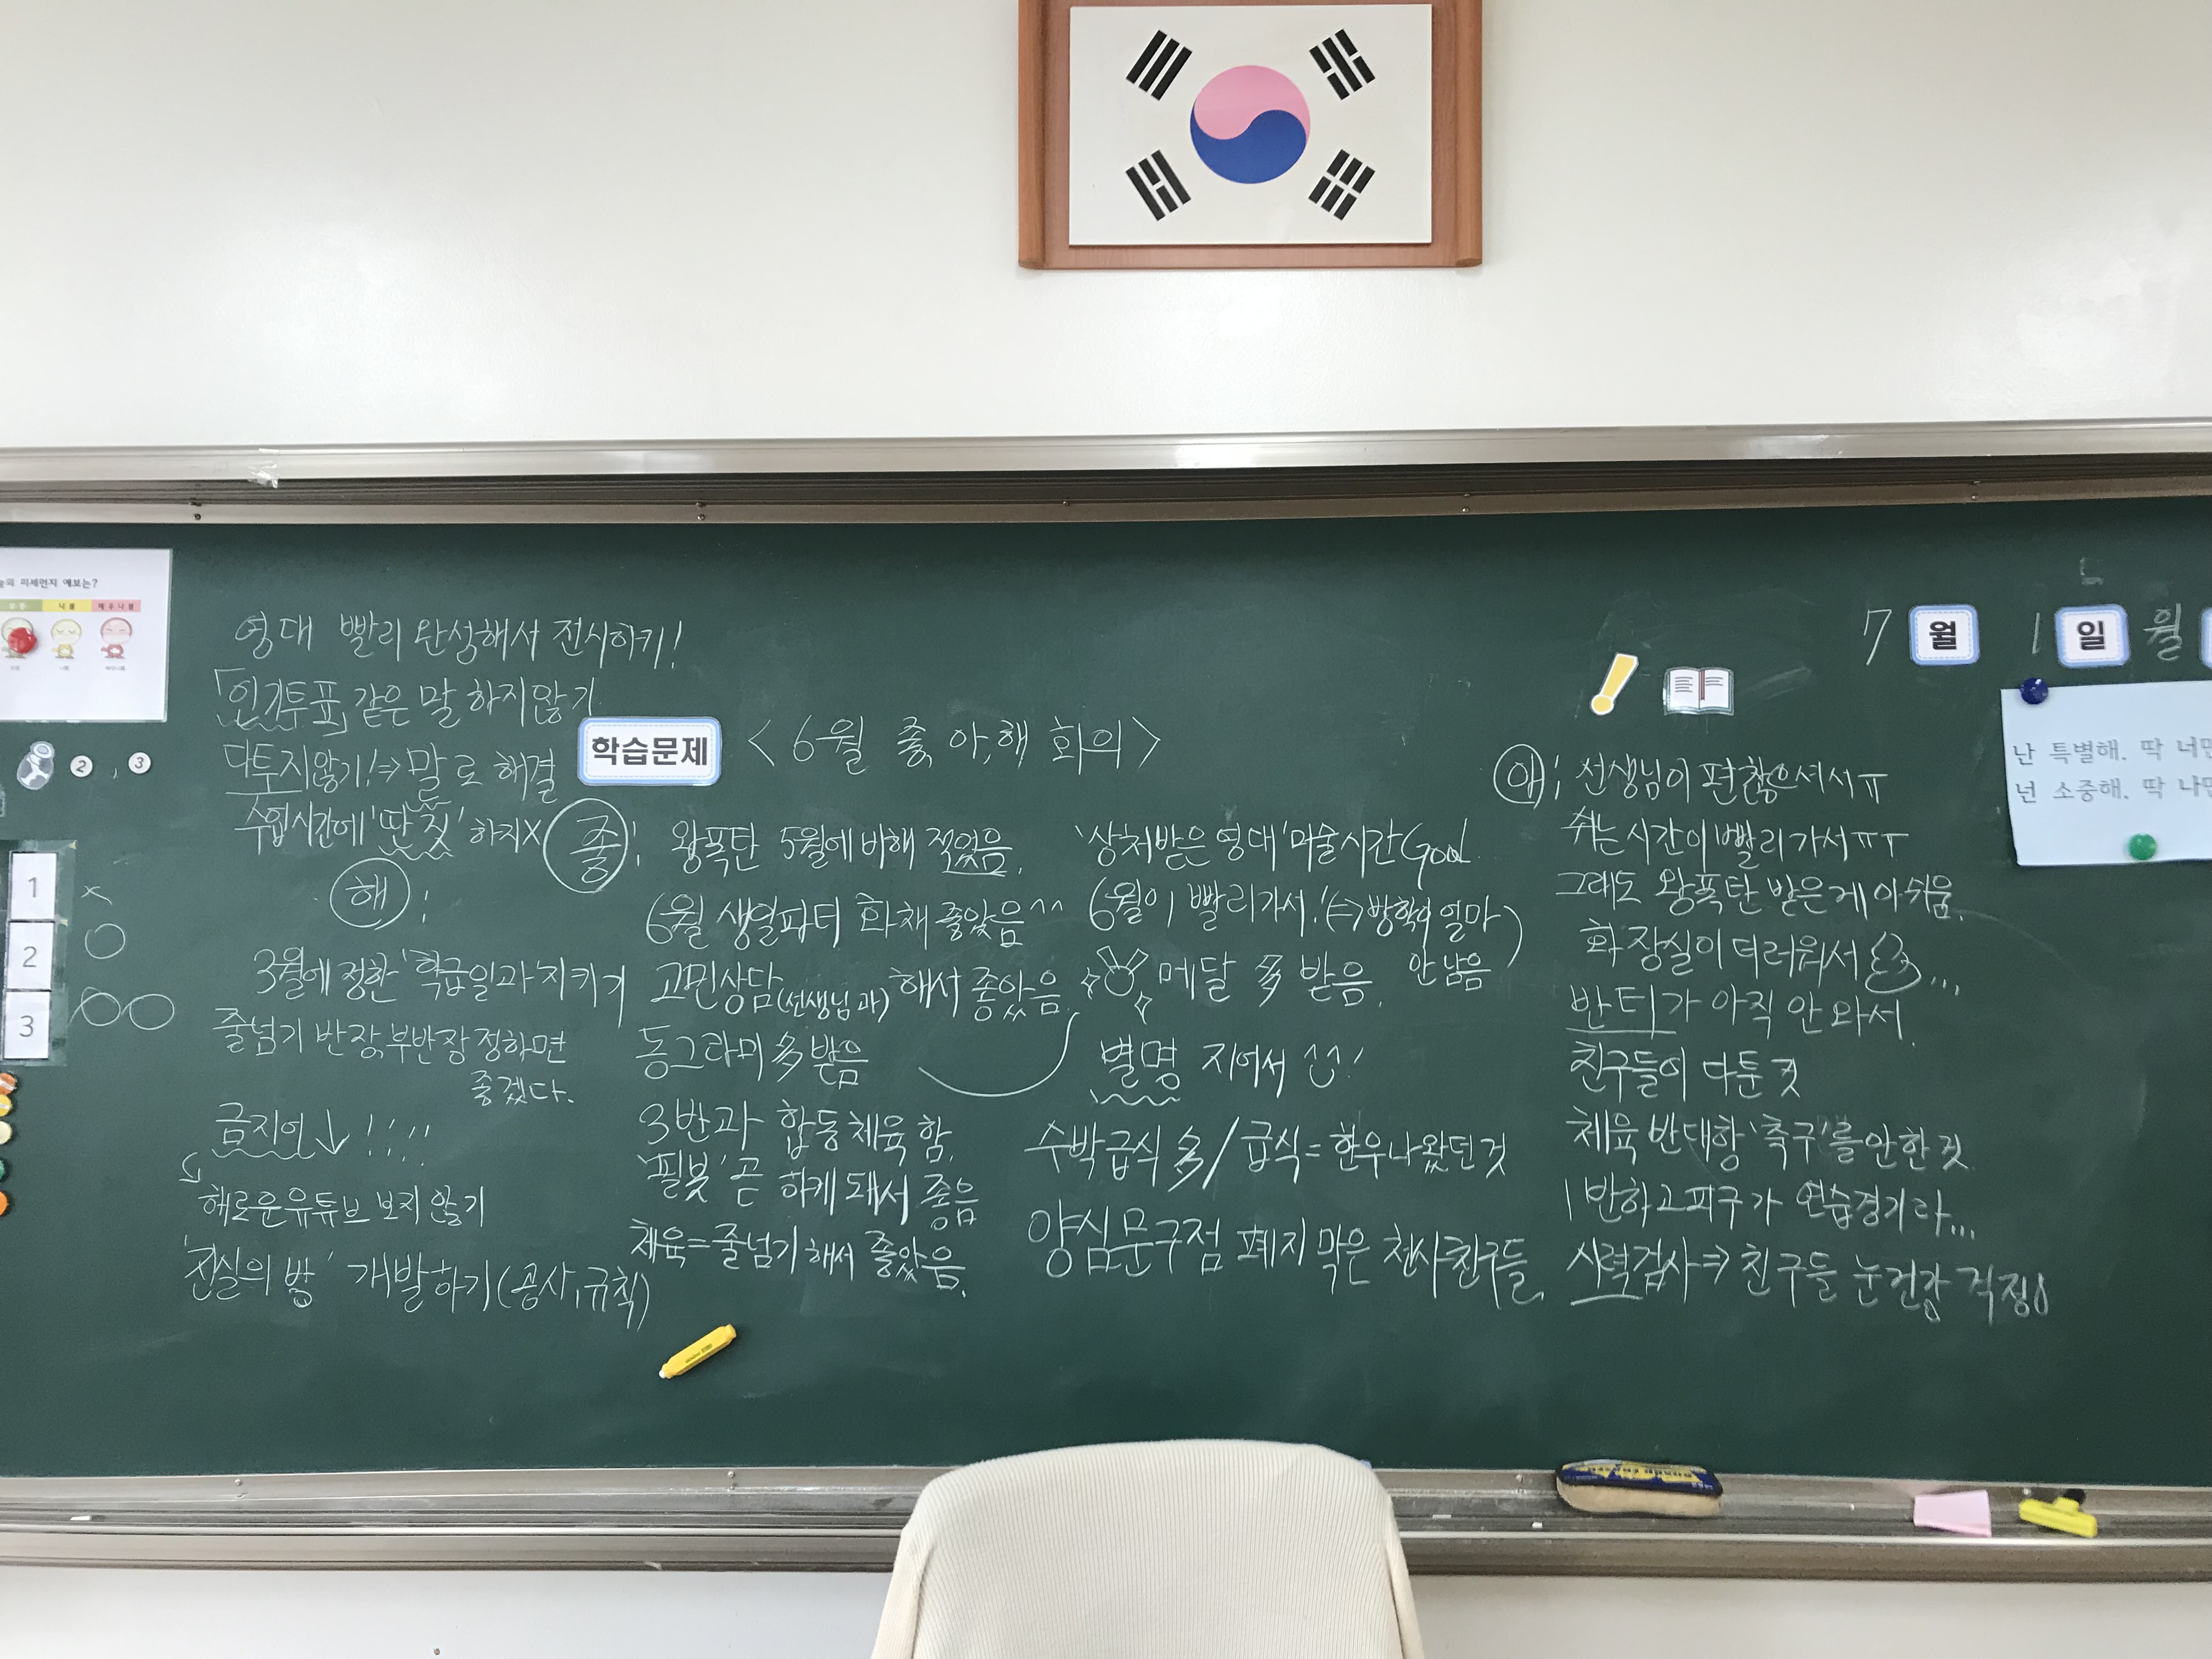 미세먼지 예보는?
나쁨
매우나쁨
2, 3
1
2
3
영대 빨리 완성해서 전시하기!
「인기투표」 같은 말 하지않기
다투지않기!⇒말로 해결
수업시간에 '딴짓' 하지X
해:
3월에 정한 '학급일과' 지키기
줄넘기 반장,부반장 정하면
좋겠다.
금지어↓!!!!
해로운 유튜브 보지 않기
'진실의 방' 개발하기(공사,규칙)
학습문제
<6월 좋,아,해 회의>
좋:
왕폭탄 5월에 비해 적었음.
6월 생일파티 화채 좋았음^^
고민상담(선생님과) 해서 좋았음.
동그라미 多 받음
3반과 합동체육 함.
'필봇' 곧 하게 돼서 좋음
체육=줄넘기 해서 좋았음.
'상처받은 영대' 미술시간 Good
6월이 빨리가서!(⇒방학이 얼마
안 남음)
메달 多 받음.
별명 지어서 ^^!
수박급식 多/급식=한우나왔던 것
양심문구점 폐지 막은 천사친구들.
7월 1일 월
아: 선생님이 편찮으셔서ㅠ
쉬는 시간이 빨리 가서ㅠㅠ
그래도 왕폭탄 받은 게 아쉬움.
화장실이 더러워서 ...
반티가 아직 안 와서.
친구들이 다툰 것
체육 반대항 '축구'를 안 한 것
1반하고 피구가 연습경기라...
시력검사⇒친구들 눈건강 걱정
난 특별해. 딱 너만
넌 소중해. 딱 나만